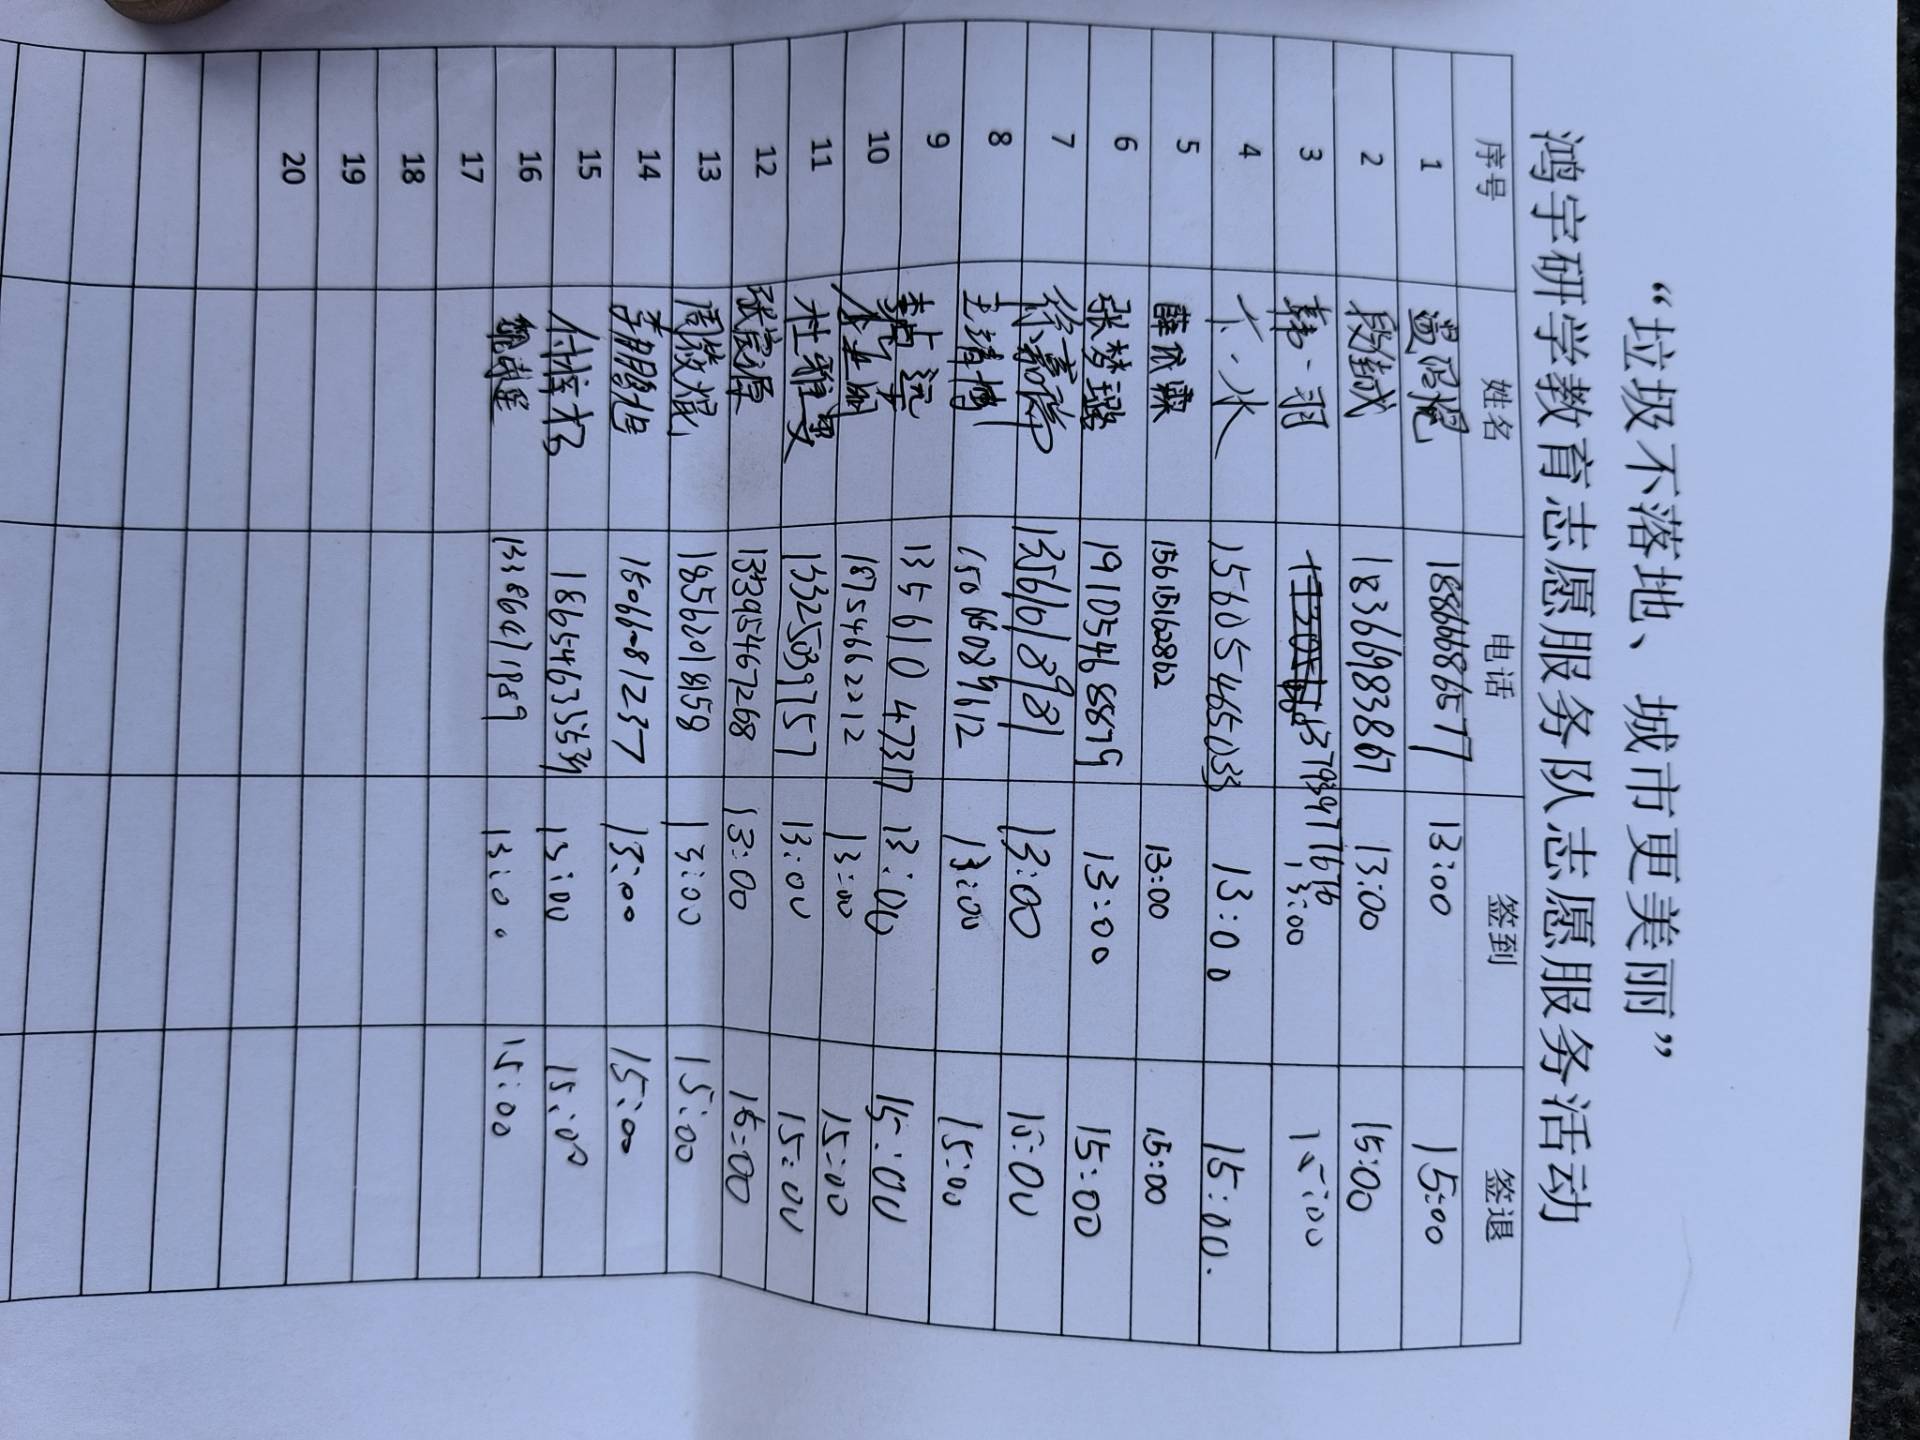 “垃圾不落地、城市更美丽”
鸿宇研学教育志愿服务队志愿服务活动
序号 姓名 电话 签到 签退
1 18866686577 13:00 15:00
2 18366983867 13:00 15:00
3 韩一羽 13:00 15:00
4 卞一水 15605465033 13:00 15:00.
5 薛依霖 15615162862 13:00 15:00
6 张梦璐 19105468879 13:00 15:00
7 徐嘉 13561618981 13:00 15:00
8 王清 15066089612 13:00 15:00
9 13561047317 13:00 15:00
10 18754662212 13:00 15:00
11 杜雅雯 13325039757 13:00 15:00
12 张宸源 13395467268 13:00 15:00
13 周 18562018159 13:00 15:00
14 李 15066681237 13:00 15:00
15 付 13:00 15:00
16 13:00 15:00
17
18
19
20